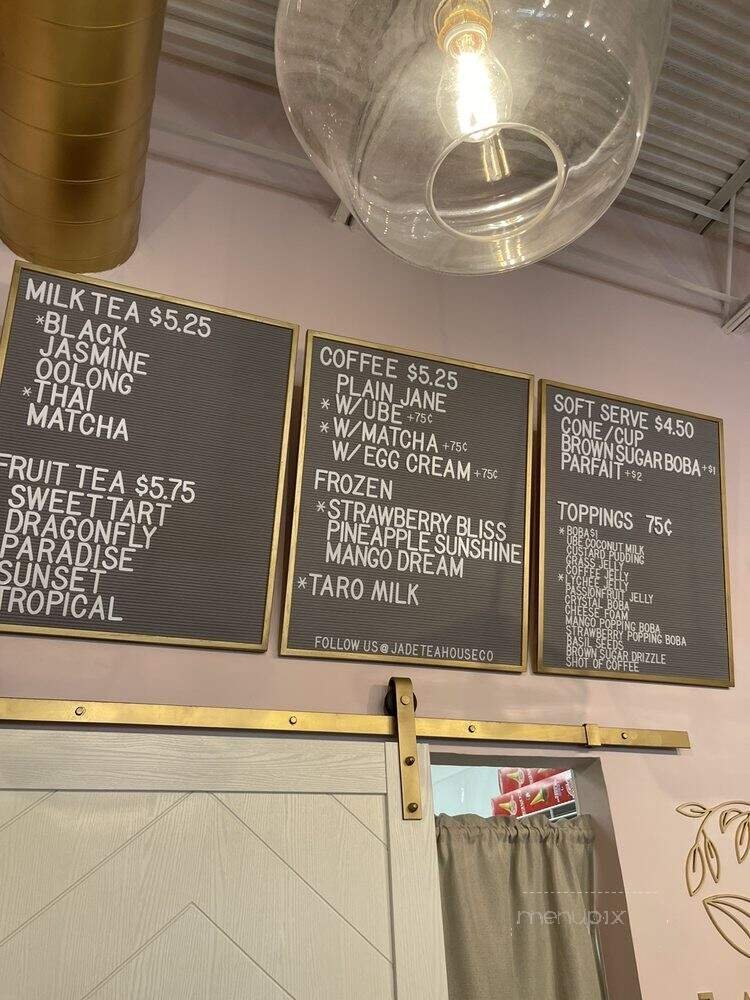 MILK TEA $5.25
*BLACK
JASMINE
OOLONG
*THAI
MATCHA
FRUIT TEA $5.75
SWEETTART
DRAGONFLY
PARADISE
SUNSET
TROPICAL
COFFEE $5.25
PLAIN JANE
* W/UBE +75¢
* W/MATCHA +75¢
W/EGG CREAM +75¢
FROZEN
*STRAWBERRY BLISS
PINEAPPLE SUNSHINE
MANGO DREAM
*TARO MILK
FOLLOW US @ JADETEAHOUSECO
SOFT SERVE $4.50
CONE/CUP
BROWN SUGAR BOBA +$1
PARFAIT +$2
TOPPINGS 75¢
* BOBA $1
UBE COCONUT MILK
CUSTARD PUDDING
GRASS JELLY
COFFEE JELLY
* LYCHEE JELLY
PASSIONFRUIT JELLY
CRYSTAL BOBA
CHEESE FOAM
MANGO POPPING BOBA
STRAWBERRY POPPING BOBA
BASIL SEEDS
BROWN SUGAR DRIZZLE
SHOT OF COFFEE
menupix